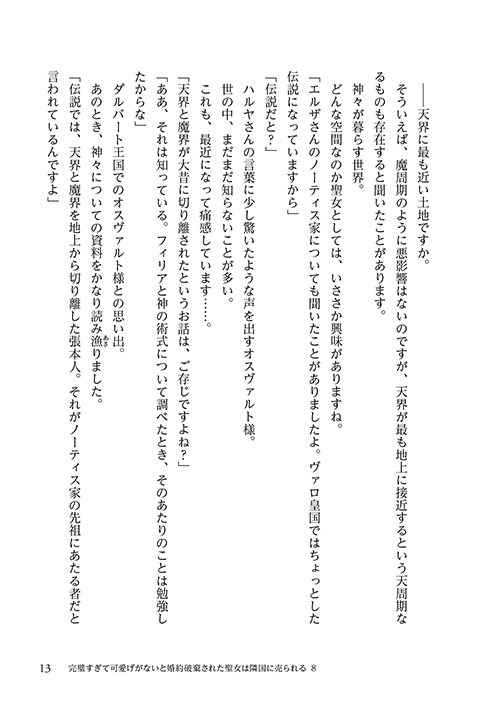 ――天界に最も近い土地ですか。
そういえば、魔周期のように悪影響はないのですが、天界が最も地上に接近するという天周期な
るものも存在すると聞いたことがあります。
神々が暮らす世界。
どんな空間なのか聖女としては、いささか興味がありますね。
「エルザさんのノーティス家についても聞いたことがありましたよ。ヴァロ皇国ではちょっとした
伝説になっていますから」
「伝説だと？」
ハルヤさんの言葉に少し驚いたような声を出すオスヴァルト様。
世の中、まだまだ知らないことが多い。
これも、最近になって痛感しています……。
「天界と魔界が大昔に切り離されたというお話は、ご存じですよね？」
「ああ、それは知っている。フィリアと神の術式について調べたとき、そのあたりのことは勉強し
たからな」
ダルバート王国でのオスヴァルト様との思い出。
あのとき、神々についての資料をかなり読み漁りました。
あさ
「伝説では、天界と魔界を地上から切り離した張本人。それがノーティス家の先祖にあたる者だと
言われているんですよ」
13 完璧すぎて可愛げがないと婚約破棄された聖女は隣国に売られる 8